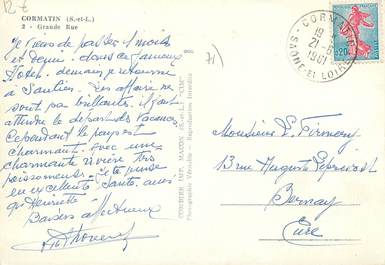 12 €
CORMATIN (S.-et-L.)
2 - Grande Rue
71)
Je viens de passer 1 mois
et demi dans ce fameux
Hotel demain je retourne
à Saulieu. Les affaire ne
sont pas brillantes il faut
attendre le départ des vacances
Cependant le pays est
charmant avec une
charmante rivière très
poissonneuse. Je te pense
en excellente Santé, ainsi
qu'Henriette
Baisers affectueux
COMBIER IMP. MACON (S.-et-L.) "CIM"
Photographie Véritable - Reproduction Interdite
CORMATIN
19 H
21-8
1961
SAONE-ET-LOIRE
0,20
Monsieur
13 rue Auguste
Bernay
Eure